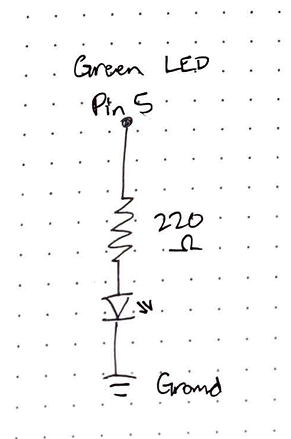 Green LED
Pin 5
220
Ω
Ground